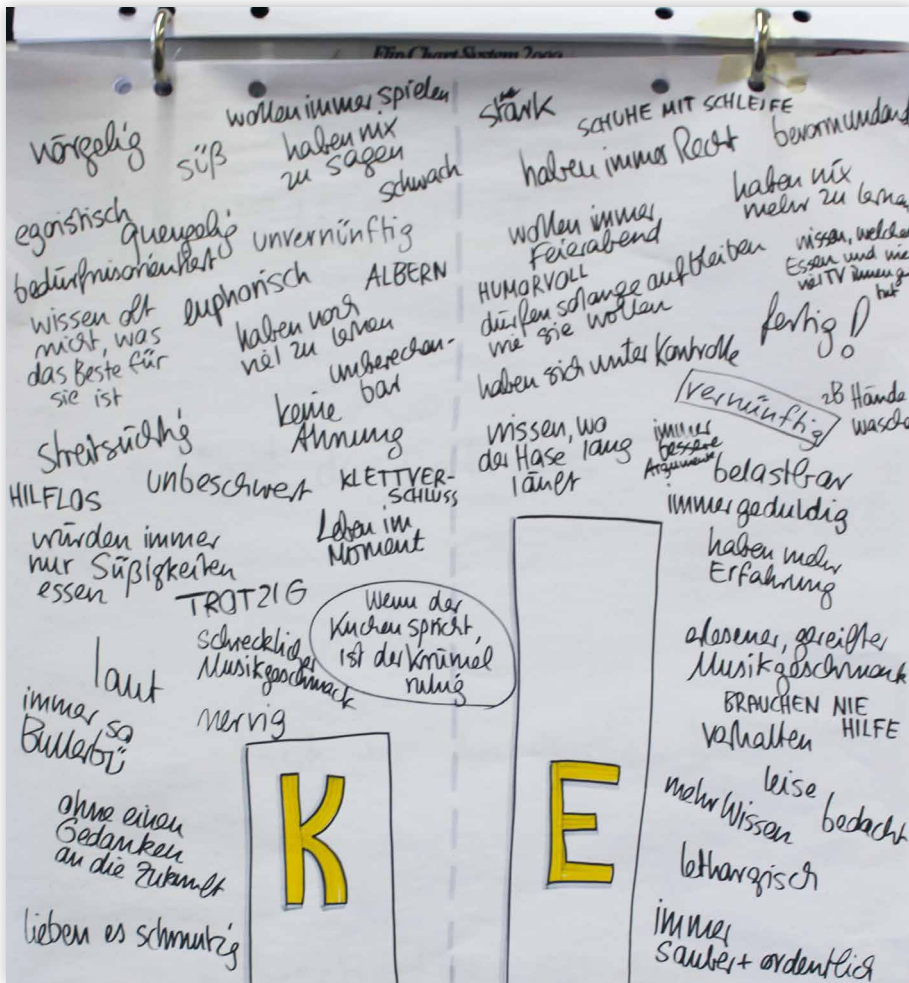 Flip Chart System 2000
nörgelig
süß
wollen immer spielen
haben nix
zu sagen
schwach
egoistisch
quengelig
unvernünftig
bedürfnisorientiert
euphorisch
ALBERN
wissen oft
nicht, was
das Beste für
sie ist
haben noch
viel zu lernen
unberechen-
bar
keine
Ahnung
streitsüchtig
HILFLOS
unbeschwert
KLETTVER-
SCHLUSS
würden immer
nur Süßigkeiten
essen
Leben im
Moment
TROTZIG
schrecklicher
Musikgeschmack
laut
nervig
immer so
Bullerbü
ohne einen
Gedanken
an die Zukunft
lieben es schmutzig
K
Wenn der
Kuchen spricht,
ist der Krümel
ruhig
stark
SCHUHE MIT SCHLEIFE
bevormundend
haben immer Recht
haben nix
mehr zu lernen
wollen immer
Feierabend
wissen, welches
Essen und wie
viel TV ihnen gut
tut
HUMORVOLL
dürfen solange aufbleiben
wie sie wollen
fertig!
haben sich unter Kontrolle
vernünftig
zB Hände
waschen
wissen, wo
der Hase lang
läuft
immer
bessere
Argumente
belastbar
immer geduldig
haben mehr
Erfahrung
erlesener, gereifter
Musikgeschmack
BRAUCHEN NIE
HILFE
verhalten
leise
mehr Wissen
bedacht
lethargisch
immer
sauber + ordentlich
E